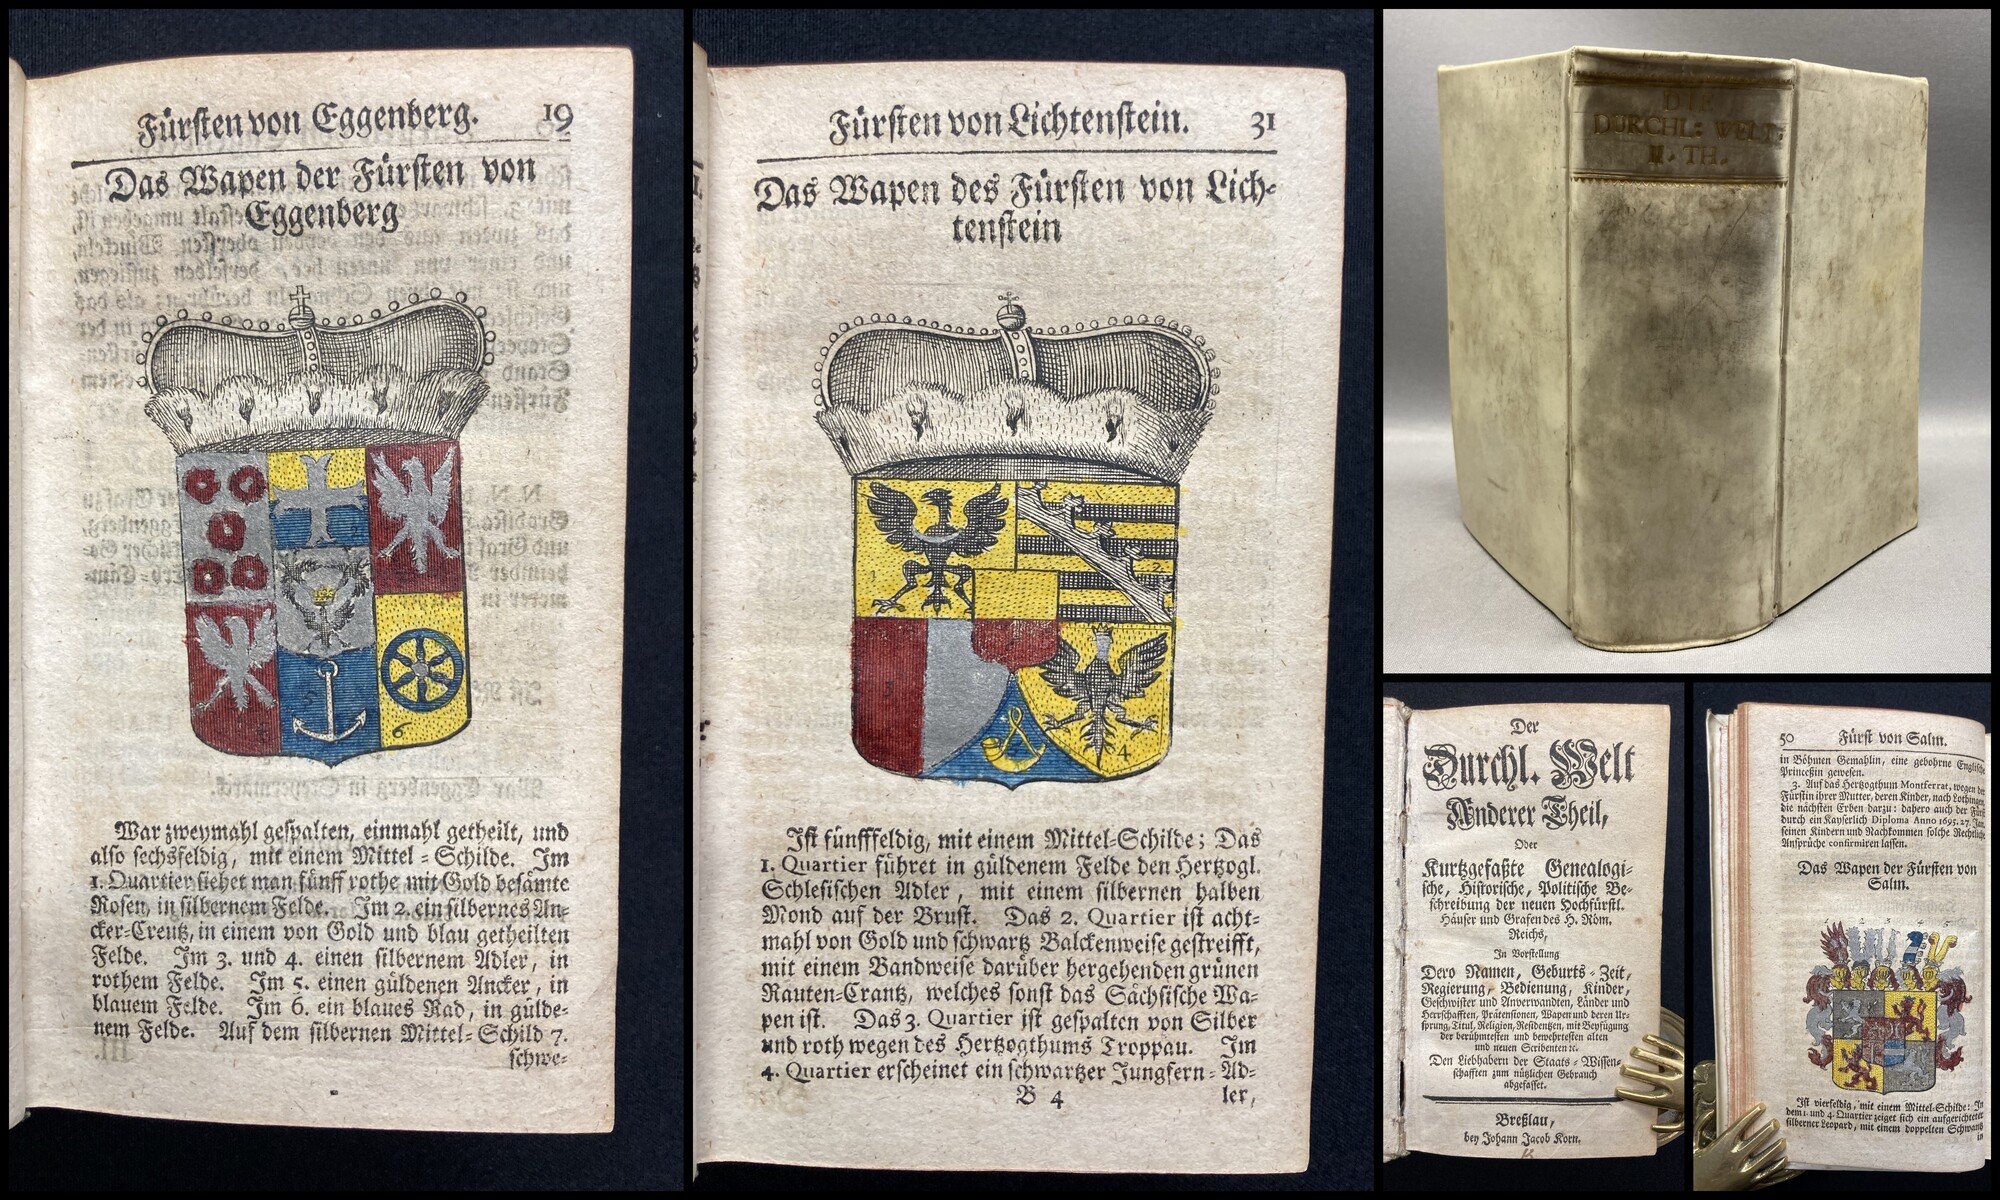 Fürsten von Eggenberg. 19
Das Wapen der Fürsten von
Eggenberg
War zweymahl gespalten, einmahl getheilt, und
also sechsfeldig, mit einem Mittel-Schilde. Im
1. Quartier siehet man fünff rothe mit Gold besämte
Rosen, in silbernem Felde. Im 2. ein silbernes An-
cker-Creutz, in einem von Gold und blau getheilten
Felde. Im 3. und 4. einen silbernem Adler, in
rothem Felde. Im 5. einen güldenen Ancker, in
blauem Felde. Im 6. ein blaues Rad, in gülde-
nem Felde. Auf dem silbernen Mittel-Schild 7.
schwe-
Fürsten von Lichtenstein. 31
Das Wapen des Fürsten von Lich-
tenstein
Ist fünfffeldig, mit einem Mittel-Schilde; Das
1. Quartier führet in güldenem Felde den Hertzogl.
Schlesischen Adler, mit einem silbernen halben
Mond auf der Brust. Das 2. Quartier ist acht-
mahl von Gold und schwartz Balckenweise gestreifft,
mit einem Bandweise darüber hergehenden grünen
Rauten-Crantz, welches sonst das Sächsische Wa-
pen ist. Das 3. Quartier ist gespalten von Silber
und roth wegen des Hertzogthums Troppau. Im
4. Quartier erscheinet ein schwartzer Jungfern-Ad-
B 4 ler,
DURCHL: WELT
II. TH.
Der
Durchl. Welt
Anderer Theil,
Oder
Kurtzgefaßte Genealogi-
sche, Historische, Politische Be-
schreibung der neuen Hochfürstl.
Häuser und Grafen des H. Röm.
Reichs,
In Vorstellung
Dero Namen, Geburts-Zeit,
Regierung, Bedienung, Kinder,
Geschwister und Anverwandten, Länder und
Herrschafften, Prätensionen, Wapen und deren Ur-
sprung, Titul, Religion, Residentzen, mit Beyfügung
der berühmtesten und bewehrtesten alten
und neuen Scribenten ꝛc.
Den Liebhabern der Staats-Wissen-
schafften zum nützlichen Gebrauch
abgefasset.
Breßlau,
bey Johann Jacob Korn.
50 Fürst von Salm.
in Böhmen Gemahlin, eine gebohrne Englische
Princeßin gewesen.
3. Auf das Hertzogthum Montferrat, wegen der
Fürstin ihrer Mutter, deren Kinder, nach Lothringen,
die nächsten Erben darzu: dahero auch der Fürst
durch ein Kayserlich Diploma Anno 1695. 27. Jan.
seinen Kindern und Nachkommen solche Rechtliche
Ansprüche confirmiren lassen.
Das Wapen der Fürsten von
Salm.
Ist vierfeldig, mit einem Mittel-Schilde: In
dem 1. und 4. Quartier zeiget sich ein aufgerichteter
silberner Leopard, mit einem doppelten Schwantz
in